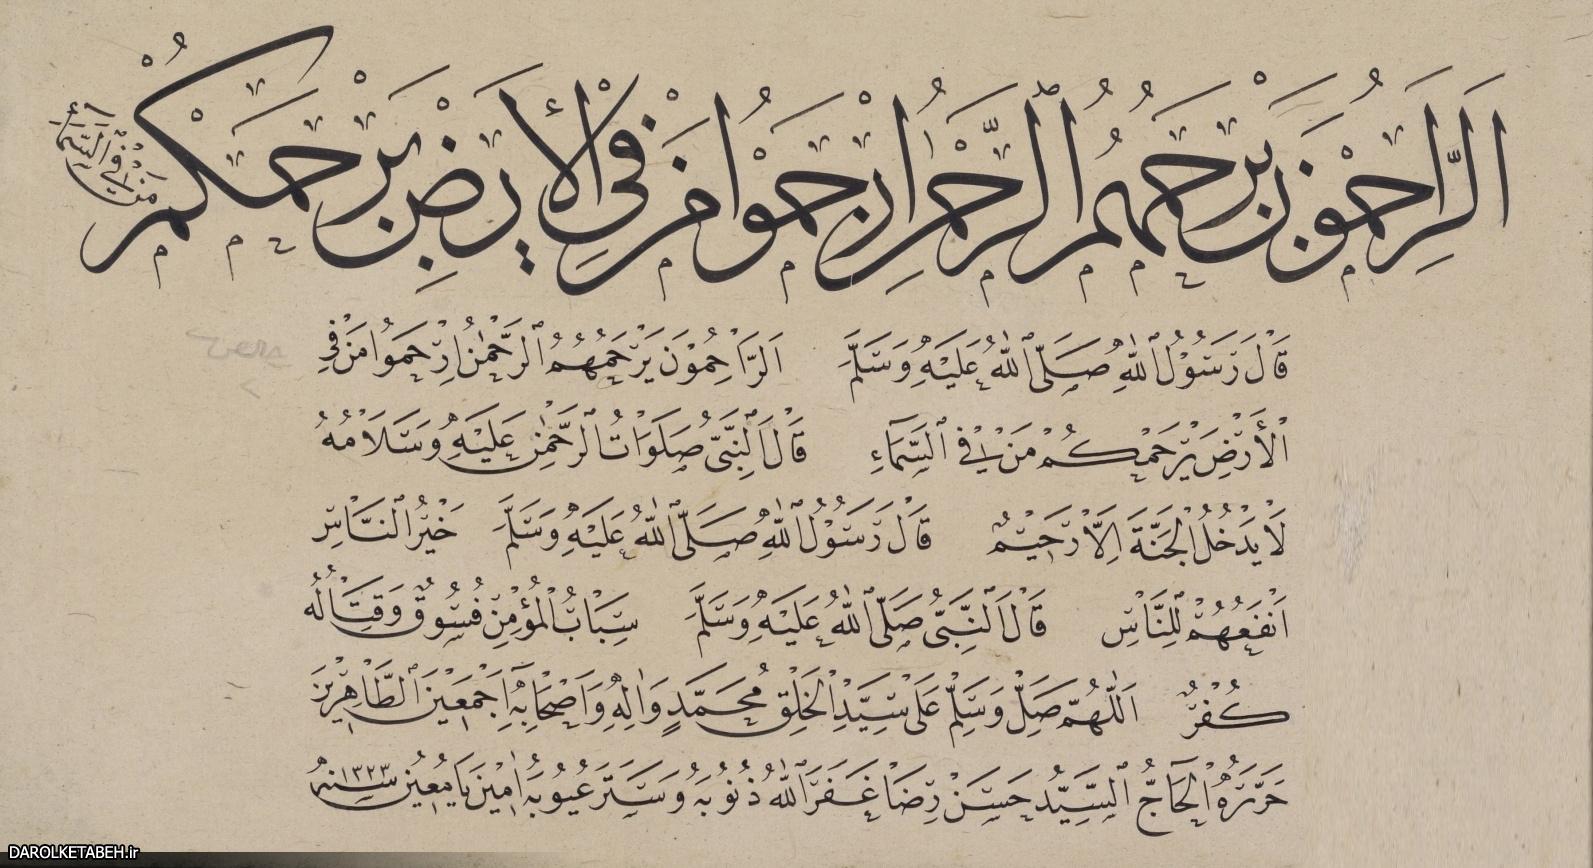 اَلرَّاحِمُوْنَ يَرْحَمُهُمُ ٱلرَّحْمٰنُ اِرْحَمُوا مَنْ فِي الْأَرْضِ يَرْحَمْكُمْ مَنْ فِي ٱلسَّمَآءِ
قَالَ رَسُوْلُ ٱللّٰهِ صَلَّى ٱللّٰهُ عَلَيْهِ وَسَلَّمَ اَلرَّاحِمُوْنَ يَرْحَمُهُمُ ٱلرَّحْمٰنُ اِرْحَمُوا مَنْ فِي
الْأَرْضِ يَرْحَمْكُمْ مَنْ فِي ٱلسَّمَآءِ قَالَ ٱلنَّبِيُّ صَلَوَاتُ ٱلرَّحْمٰنِ عَلَيْهِ وَسَلَامُهُ
لَا يَدْخُلُ الْجَنَّةَ اِلَّا رَحِيْمٌ قَالَ رَسُوْلُ ٱللّٰهِ صَلَّى ٱللّٰهُ عَلَيْهِ وَسَلَّمَ خَيْرُ ٱلنَّاسِ
اَنْفَعُهُمْ لِلنَّاسِ قَالَ ٱلنَّبِيُّ صَلَّى ٱللّٰهُ عَلَيْهِ وَسَلَّمَ سِبَابُ الْمُؤْمِنِ فُسُوْقٌ وَقِتَالُهُ
كُفْرٌ اَللّٰهُمَّ صَلِّ وَسَلِّمْ عَلَى سَيِّدِ الْخَلْقِ مُحَمَّدٍ وَاٰلِهِ وَاَصْحَابِهِ اَجْمَعِيْنَ ٱلطَّاهِرِيْنَ
حَرَّرَهُ الْحَاجُّ ٱلسَّيِّدُ حَسَنْ رِضَا غَفَرَ ٱللّٰهُ ذُنُوْبَهُ وَسَتَرَ عُيُوْبَهُ اٰمِيْنَ يَا مُعِيْنُ سنه ١٣٢٣
DAROLKETABEH.ir